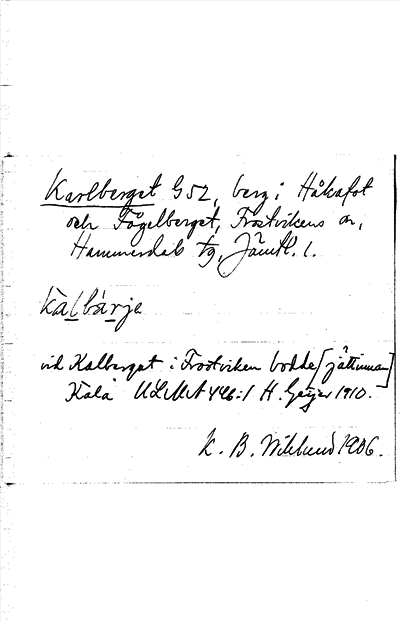 Karlberget G52, berg i Håkafot
och Fågelberget, Frostvikens sn,
Hammerdals tg, Jämtl. l.
kàlbárje
vid Kalberget i Frostviken bodde [jättinnan]
Kala ULMA 446:1 H. Geijer 1910.
K. B. Wiklund 1906.